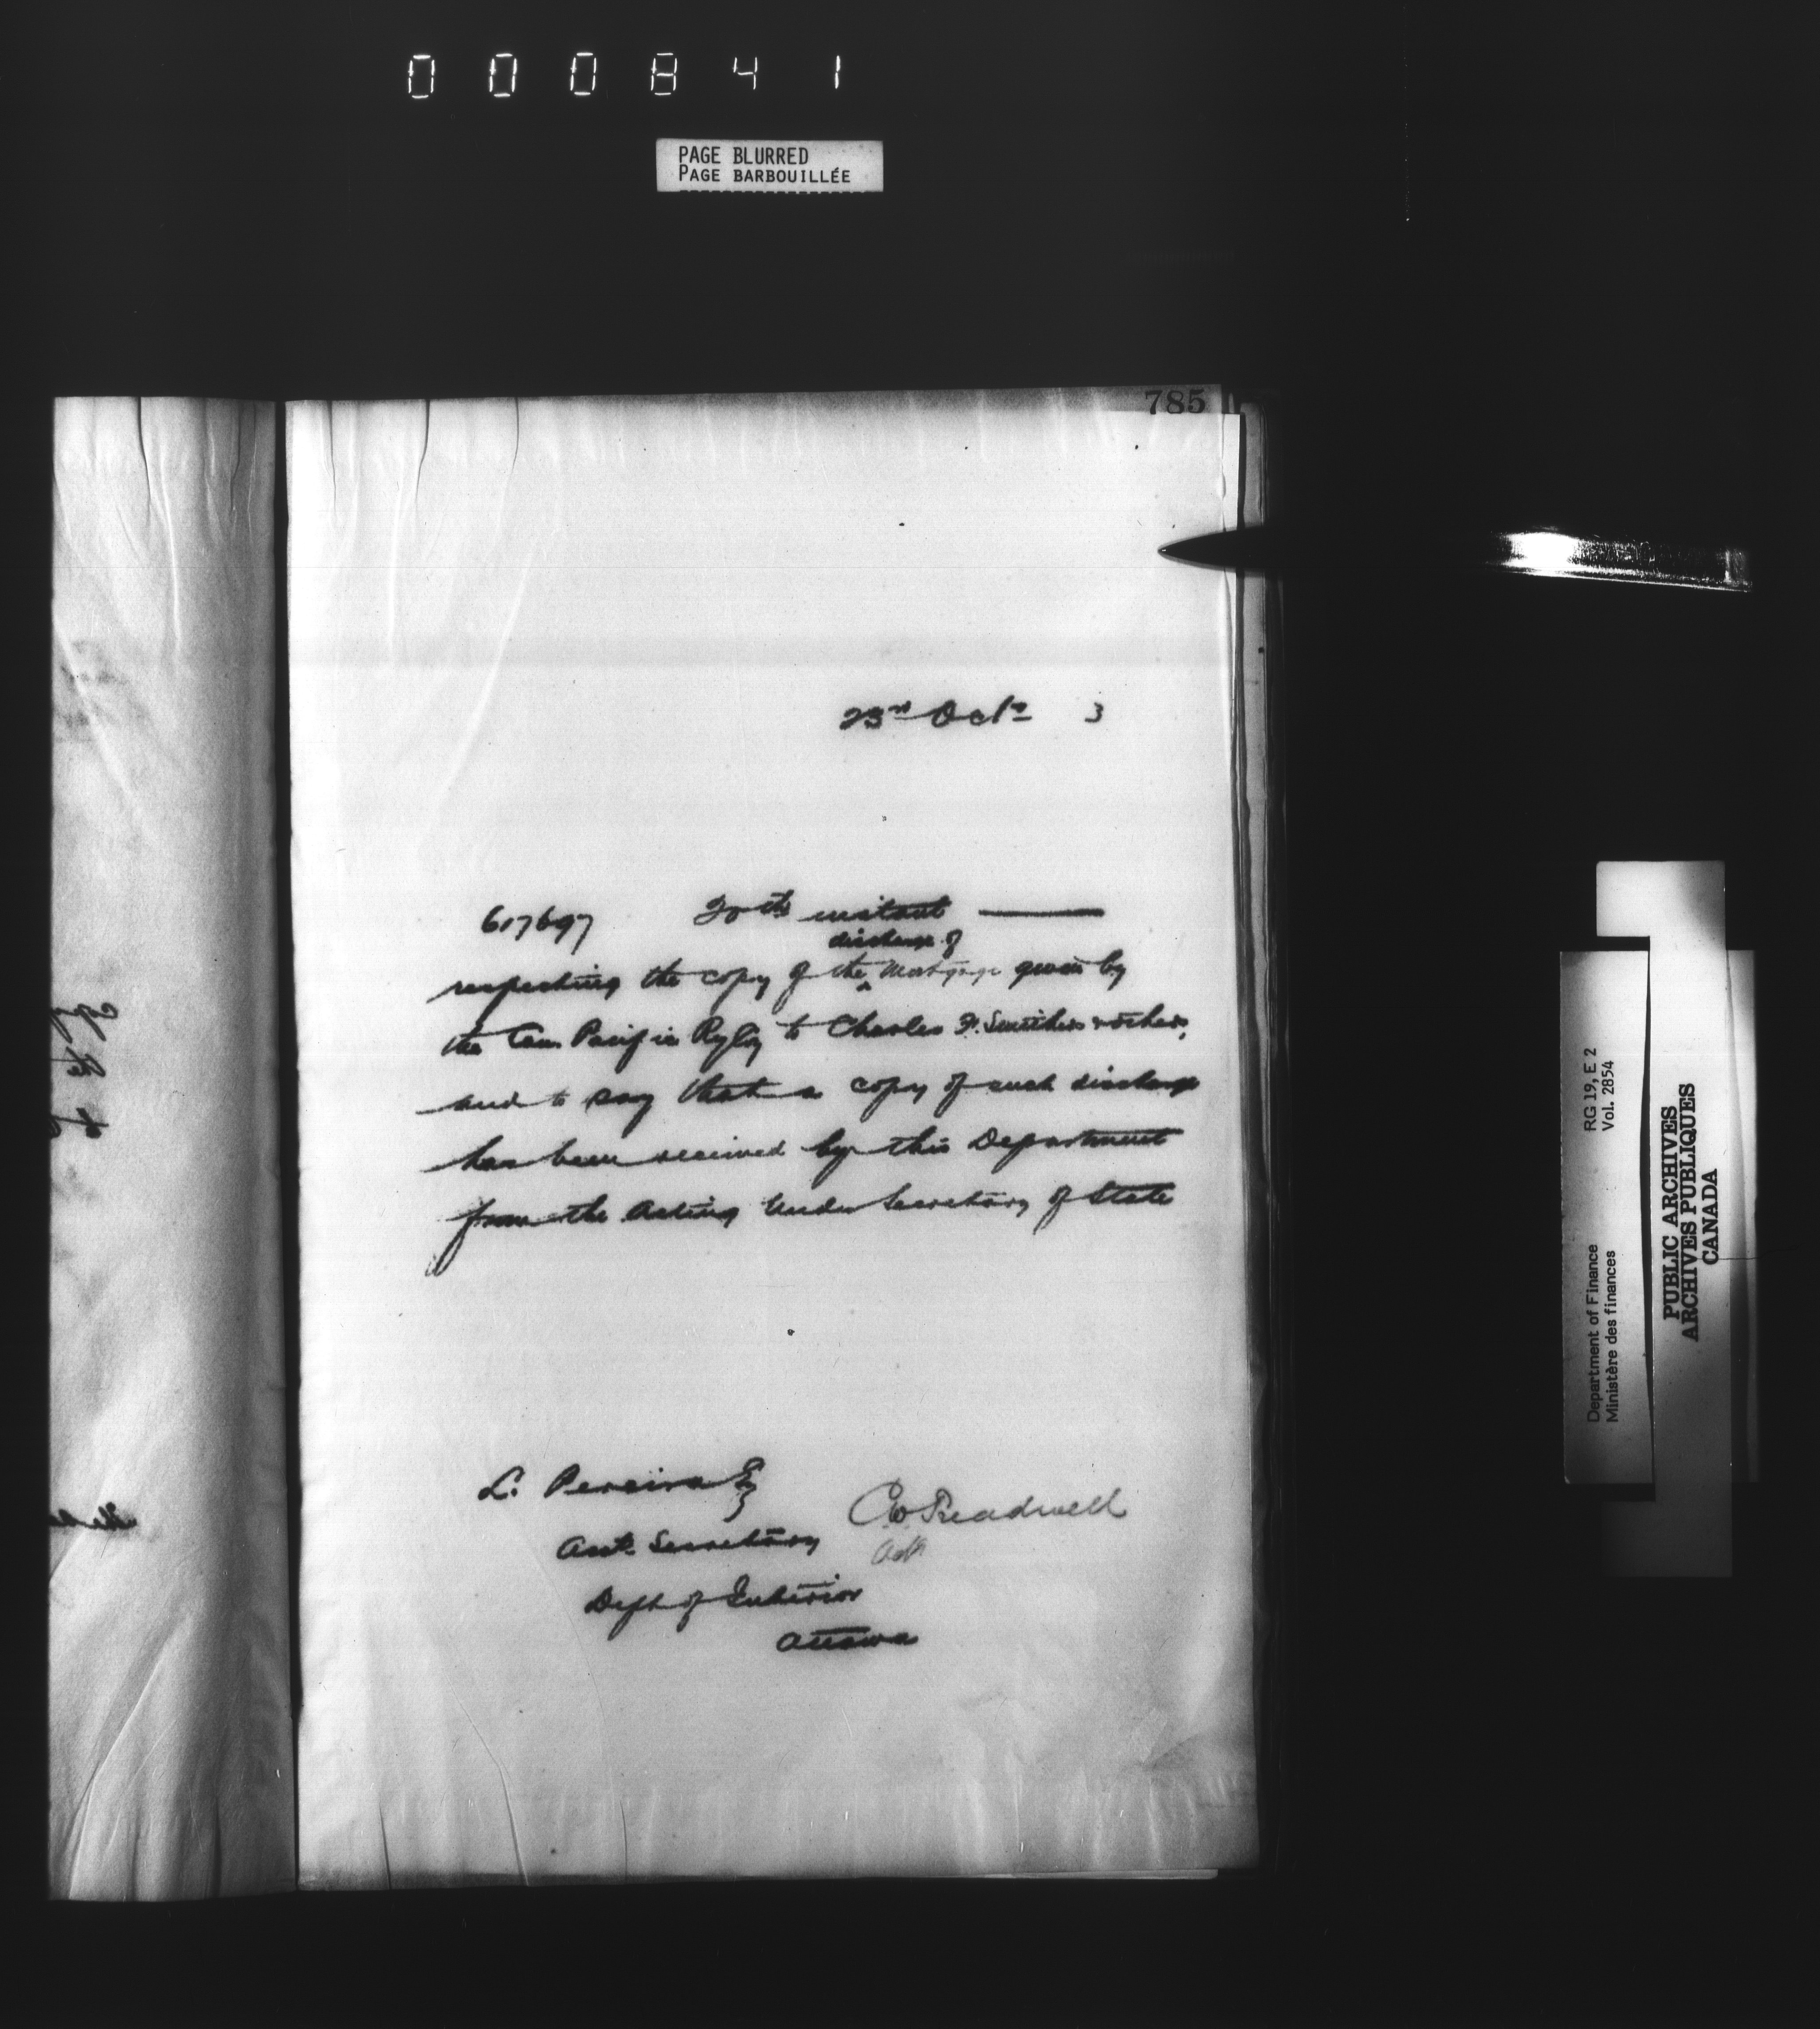 000841
PAGE BLURRED
PAGE BARBOUILLÉE
785
23rd Octr 3
617697 20th instant
discharge of
respecting the copy of the ^ Mortgage given by
the Can. Pacific Ry Co to Charles F. Smithers & others,
and to say that a copy of such discharge
has been received by this Department
from the Acting Under Secretary of State
L. Pereira Esq
Asst. Secretary
Dept of Interior
Ottawa
C. Treadwell
RG 19, E 2
Vol. 2854
Department of Finance
Ministère des finances
PUBLIC ARCHIVES
ARCHIVES PUBLIQUES
CANADA